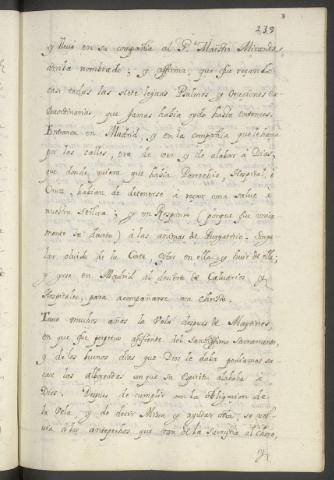 239
y llevó en su compañia al P.e Maestro Miranda
arriba nombrado; y affirma, que fue rezando
casi todas las siete leguas Psalmos, y Oraciones ex
que jamas había oydo hasta entonces.
Entraron en Madrid, y en la compañia que llebaba
por las calles, era de ver, y de alabar á Dios,
que donde quiera que había Parrochia, Hospital, ó
Cruz, habían de detenerse á rezar una salve á
nuestra Señora; y un Responso (porque fue
su devoto) á las animas de Purgatorio.
olvido de la Corte, estar en ella, y huir de ella;
y que en Madrid al desierto de Calvarios, y
Hospitales, para acompañarse con Christo.
Tuvo muchos años la Vela despues de Maytines,
en que fue perpetuo assistente del Santissimo Sacramento,
y de los buenos dias que Dios le daba podíamos sa
car las alboradas en que su Espiritu alababa á
Dios. Despues de cumplir con la obligacion de
la Vela, y de decir Missa y ayudar otra, se vol
via á los antepechos que van de la Sacristia al Choro,
y